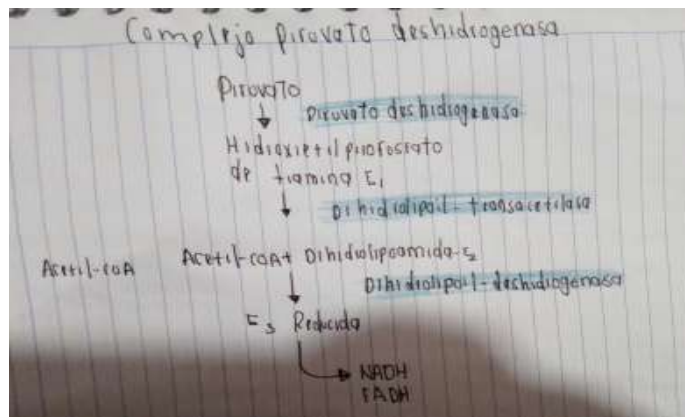 Complejo piruvato deshidrogenasa
Piruvato
Piruvato deshidrogenasa
Hidroxietil pirofosfato
de tiamina E1
Dihidrolipoil-transacetilasa
Acetil-coA
Acetil-coA + Dihidrolipoamida-E2
Dihidrolipoil-deshidrogenasa
E3 Reducida
NADH
FADH